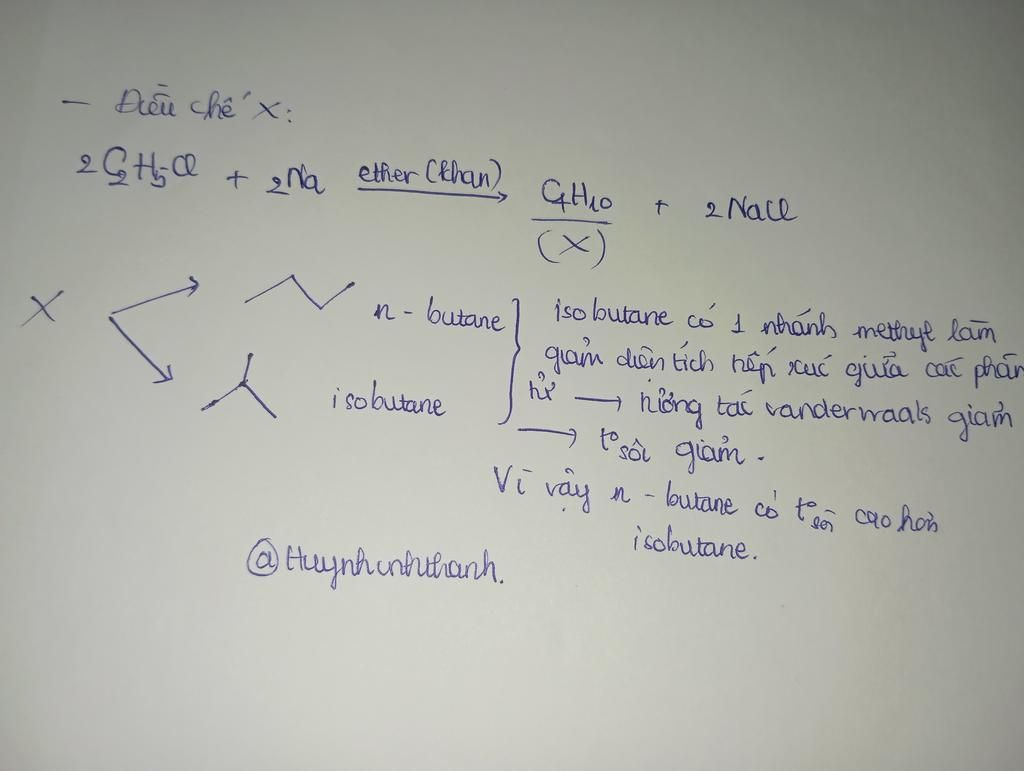 - Điều chế X:
2C₂H₅Cl + 2Na ether (khan) C₄H₁₀ + 2NaCl
(X)
X
n - butane
isobutane
isobutane có 1 nhánh methyl làm
giảm diện tích tiếp xúc giữa các phân
tử → tương tác vanderwaals giảm
→ t°sôi giảm.
Vì vậy n - butane có t°sôi cao hơn
isobutane.
@Huynhvnhthanh.